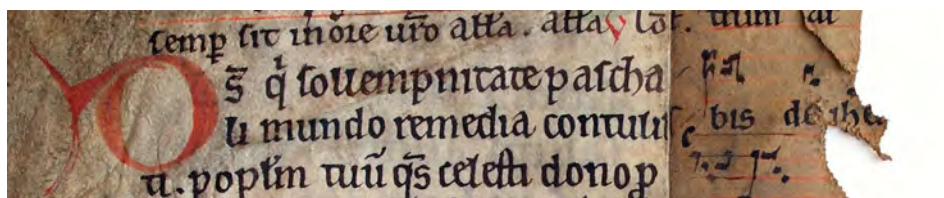 semp sit in ore uro atta. atta
Os̄ q sollempnitate pascha
li mundo remedia contulis
ti. poplm tuū qs celesti dono p
bis de